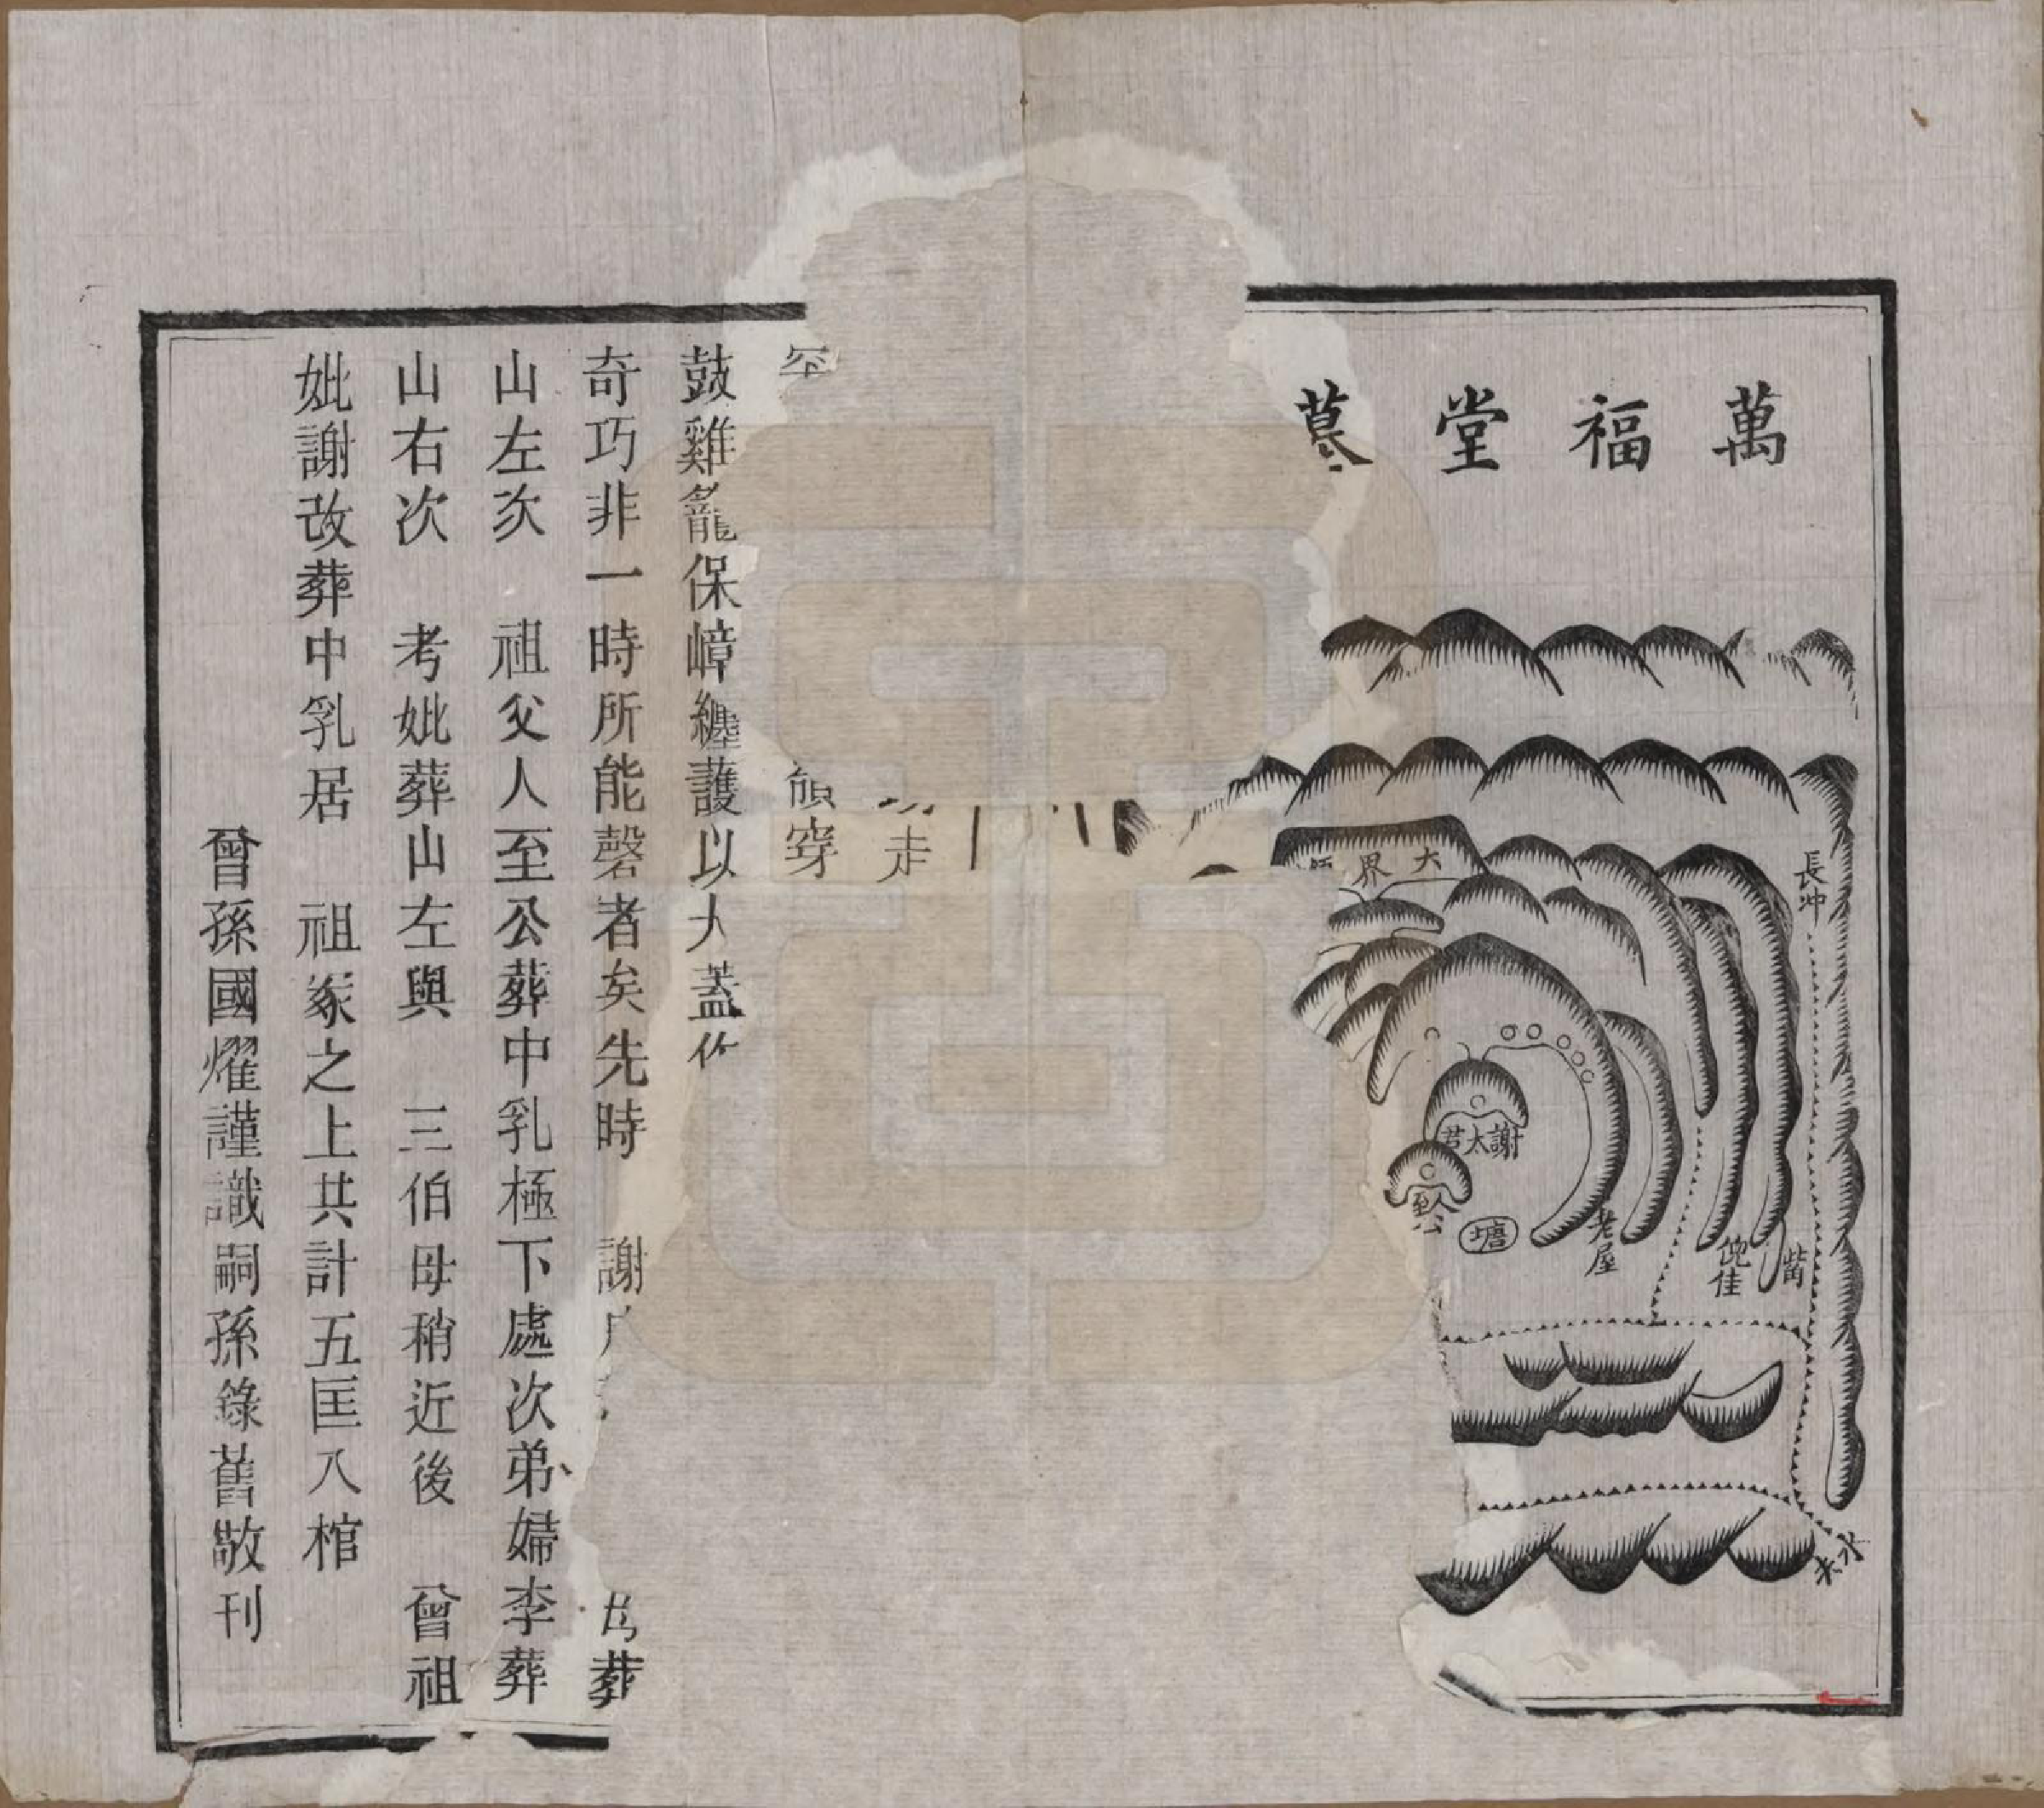 萬福堂墓
大界
長冲
謝太君
至公
塘
老屋
倪佳
嘴
水
走
穿
鼓雞籠保嶂纏護以大蓋
奇巧非一時所能罄者矣先時 謝 葬
山左次 祖父人至公葬中乳極下處次弟婦李葬
山右次 考妣葬山左與 三伯母稍近後 曾祖
妣謝改葬中乳居 祖冢之上共計五匡八棺
曾孫國燿謹識嗣孫錄舊敬刊